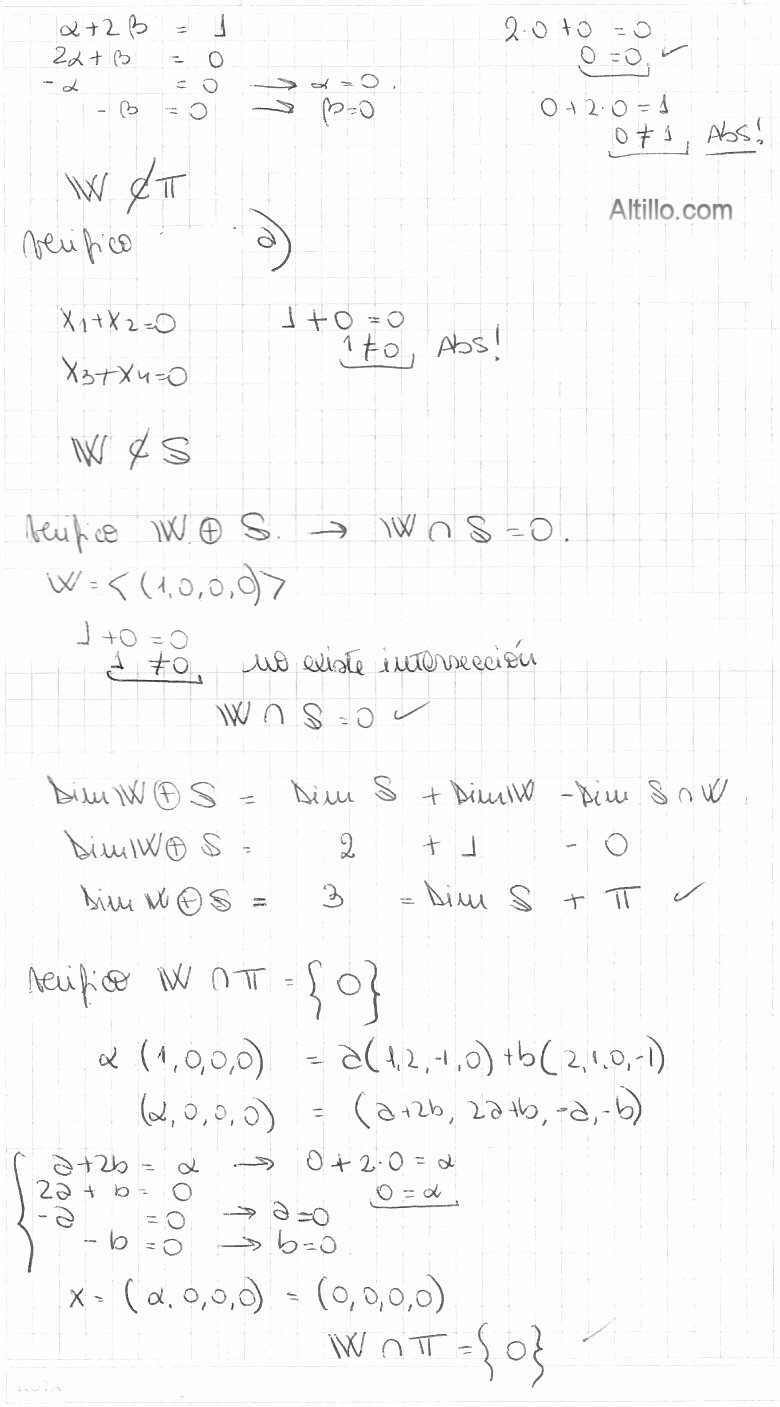 α + 2β = 1
2α + β = 0
-α = 0 → α = 0.
-β = 0 → β = 0
2·0 + 0 = 0
0 = 0 ✓
0 + 2·0 = 1
0 ≠ 1, Abs!
𝕎 ⊄ π
Altillo.com
Verifico a)
X1 + X2 = 0
X3 + X4 = 0
1 + 0 = 0
1 ≠ 0, Abs!
𝕎 ⊄ 𝕊
Verifico 𝕎 ⊕ 𝕊. → 𝕎 ∩ 𝕊 = 0.
W = <(1,0,0,0)>
1 + 0 = 0
1 ≠ 0, no existe intersección
𝕎 ∩ 𝕊 = 0 ✓
Dim 𝕎 ⊕ 𝕊 = Dim 𝕊 + Dim 𝕎 - Dim 𝕊 ∩ 𝕎.
Dim 𝕎 ⊕ 𝕊 = 2 + 1 - 0
Dim 𝕎 ⊕ 𝕊 = 3 = Dim 𝕊 + π ✓
Verifico 𝕎 ∩ π = {0}
α (1,0,0,0) = a(1,2,-1,0) + b(2,1,0,-1)
(α,0,0,0) = (a+2b, 2a+b, -a, -b)
a + 2b = α → 0 + 2·0 = α
2a + b = 0
0 = α
-a = 0 → a = 0
-b = 0 → b = 0
x = (α,0,0,0) = (0,0,0,0)
𝕎 ∩ π = {0} ✓